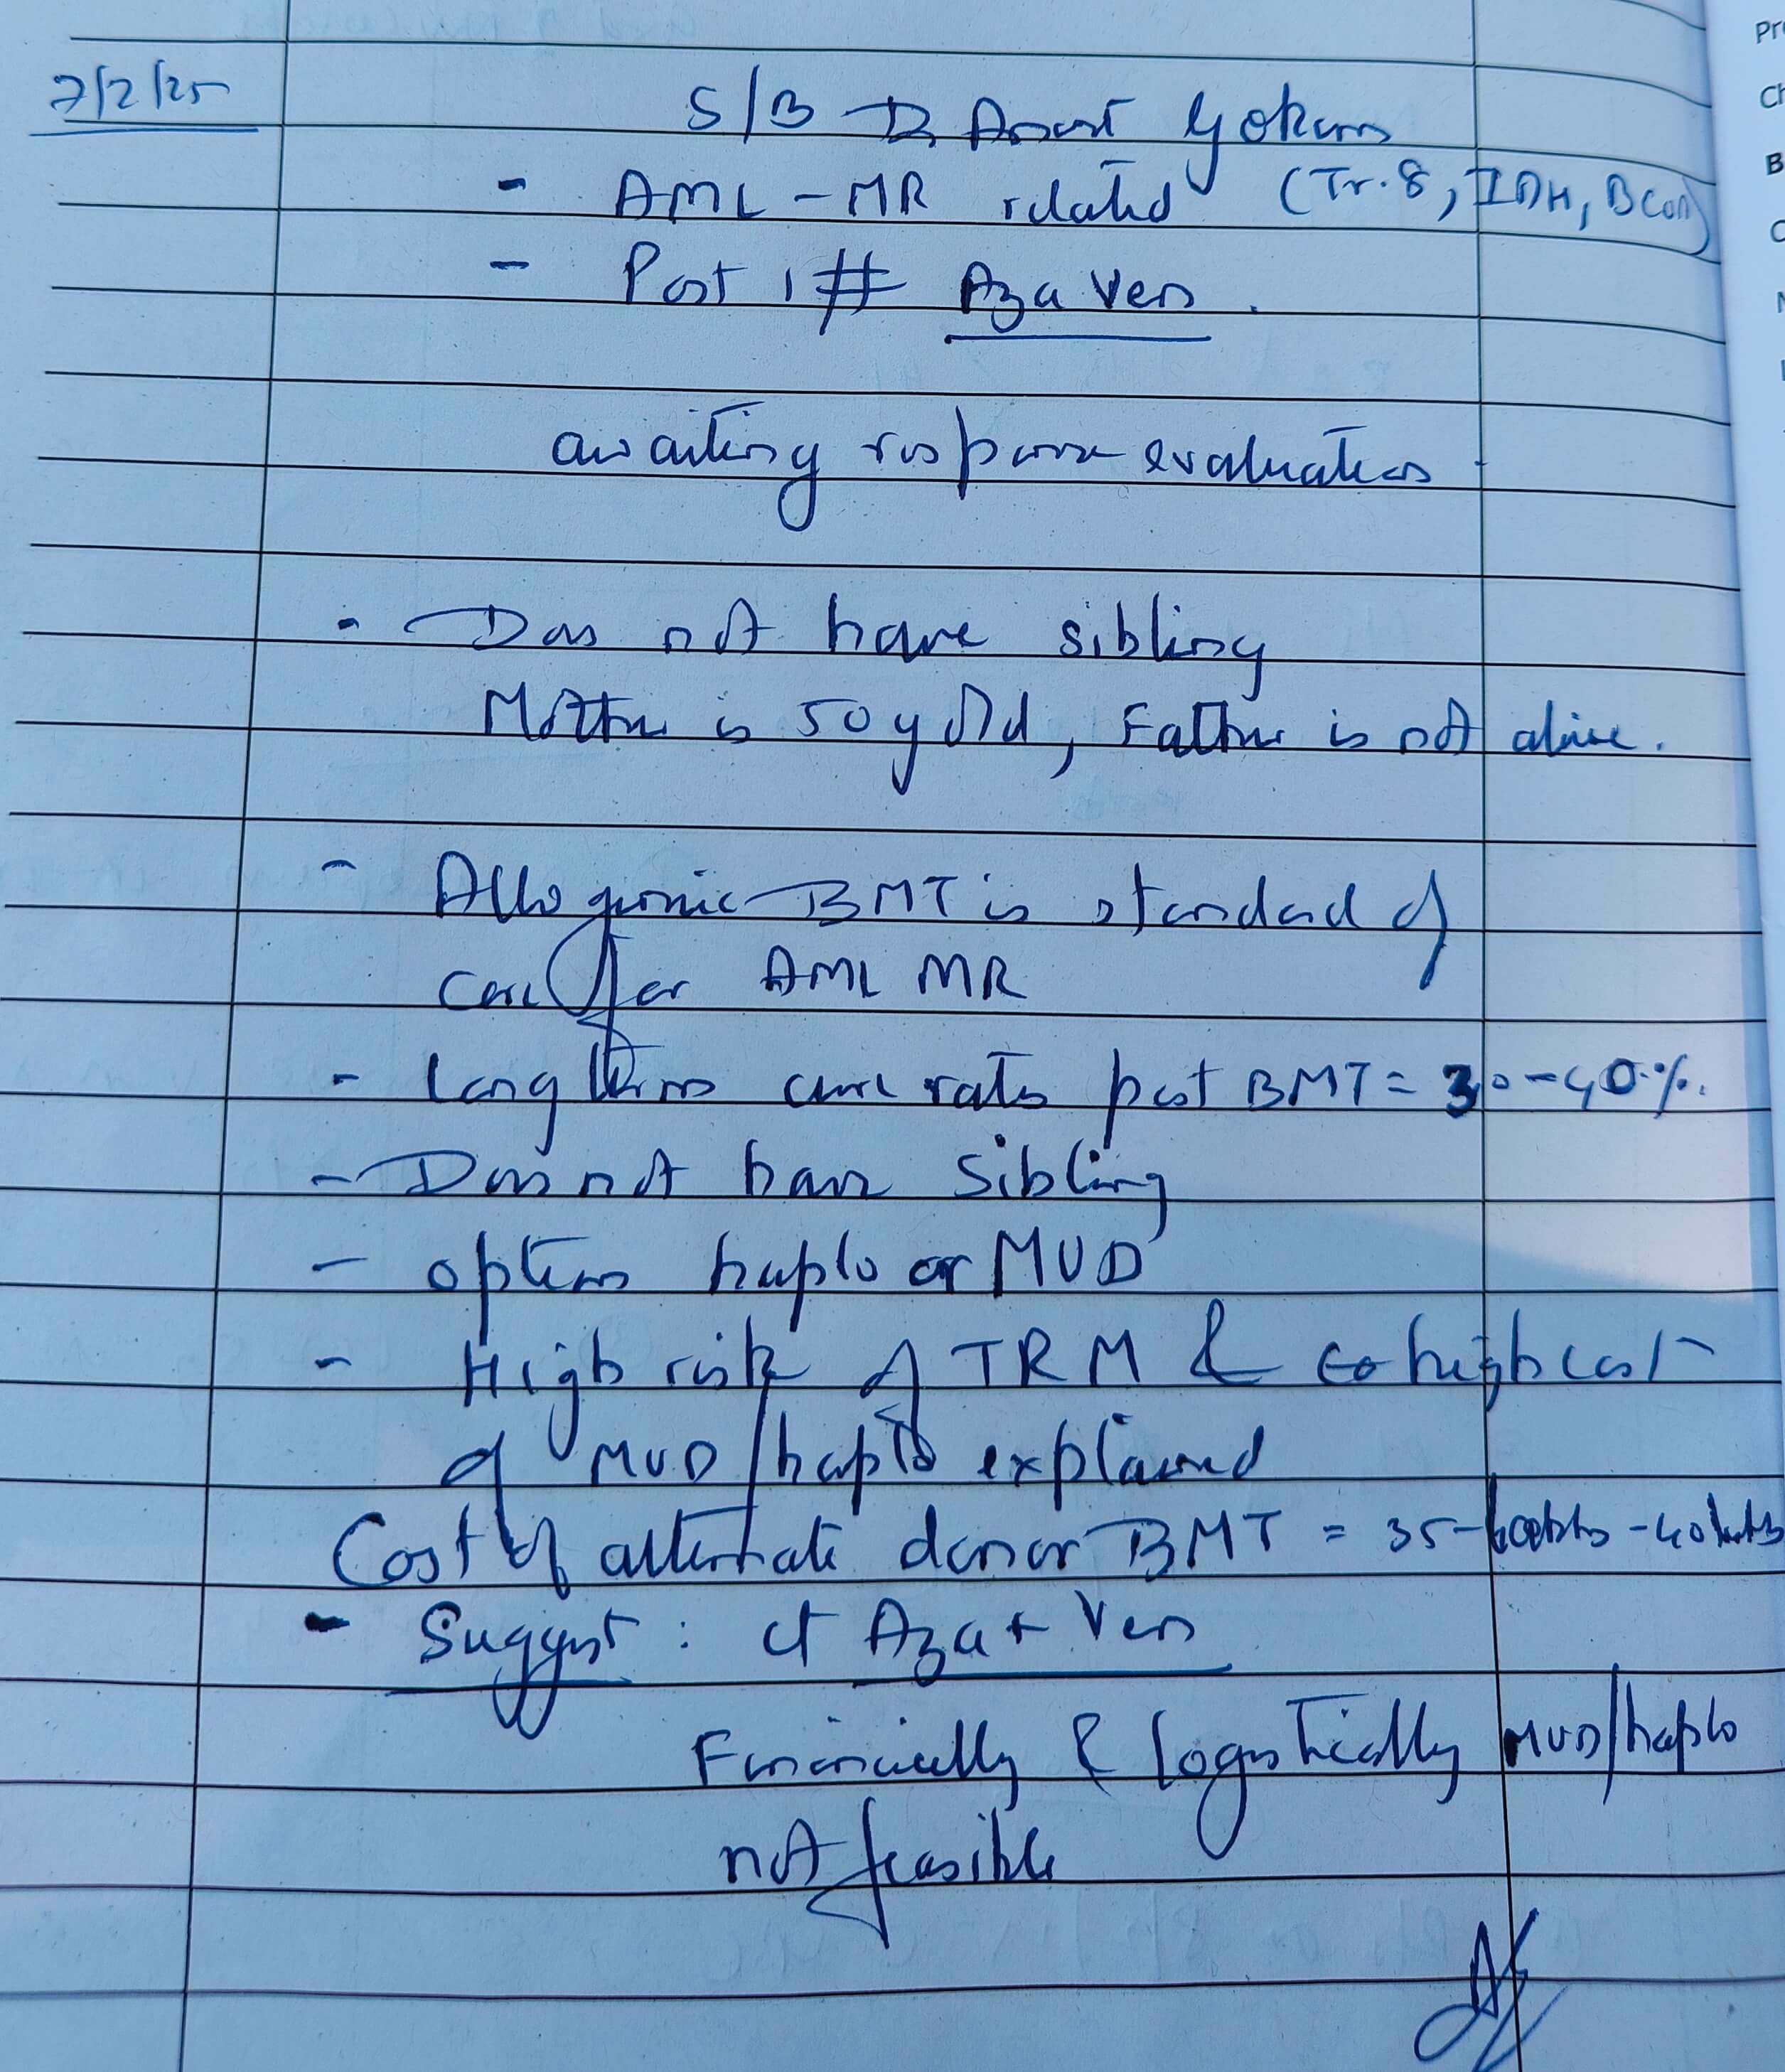 7/2/25
S/B Dr Anant Gokarn
- AML-MR related (Tr.8, IDH, BCOR)
- Post 1 # Aza Ven.
awaiting response evaluation
- Does not have sibling
Mother is 50 y old, Father is not alive.
- Allogeneic BMT is standard of
care for AML MR
- Long term cure rates post BMT = 30-40%.
- Does not have sibling
- option haplo or MUD
- High risk of TRM & high cost
of MUD/haplo explained
Cost of alternate donor BMT = 35- -40 lakhs
- Suggest: ct Aza + Ven
Financially & logistically MUD/haplo
not feasible